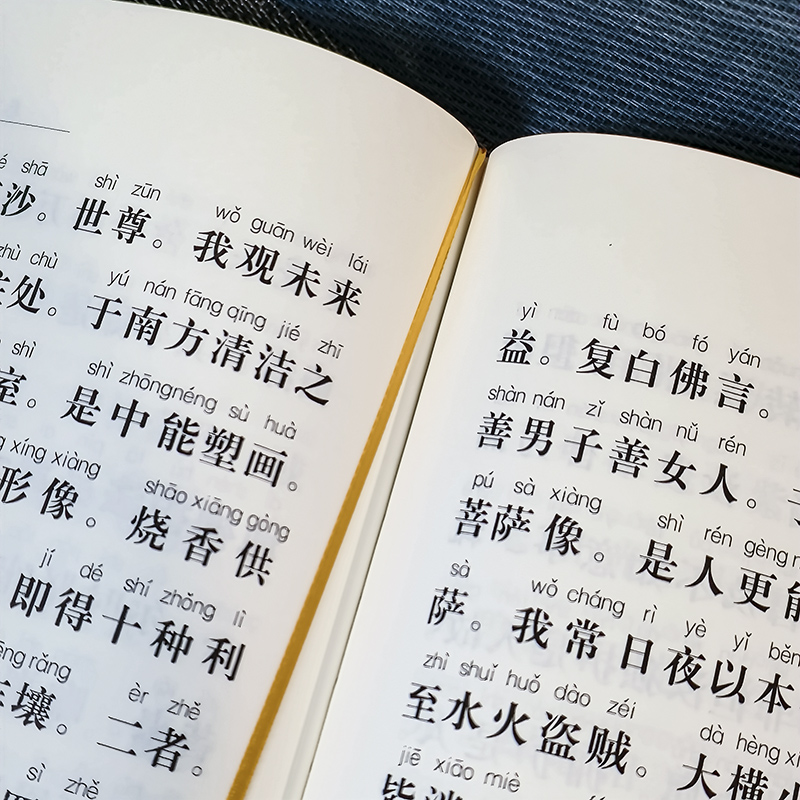 shā shì zūn wǒ guān wèi lái
沙。世尊。我观未来
zhù chù yú nán fāng qīng jié zhī
住处。于南方清洁之
shì shì zhōng néng sù huà
室。是中能塑画。
xíng xiàng shāo xiāng gòng
形像。烧香供
jí dé shí zhǒng lì
即得十种利
rǎng èr zhě
壤。二者。
sì zhě
yì fù bó fó yán
益。复白佛言。
shàn nán zǐ shàn nǚ rén
善男子善女人。
pú sà xiàng shì rén gèng
菩萨像。是人更能
sà wǒ cháng rì yè yǐ běn
萨。我常日夜以本
zhì shuǐ huǒ dào zéi dà hèng
至水火盗贼。大横
jiē xiāo miè
皆消